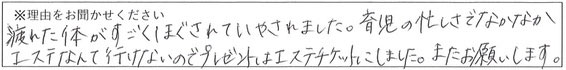 ※理由をお聞かせください
疲れた体がすごくほぐされていやされました。育児の忙しさでなかなか
エステなんて行けないのでプレゼントはエステチケットにしました。またお願いします。